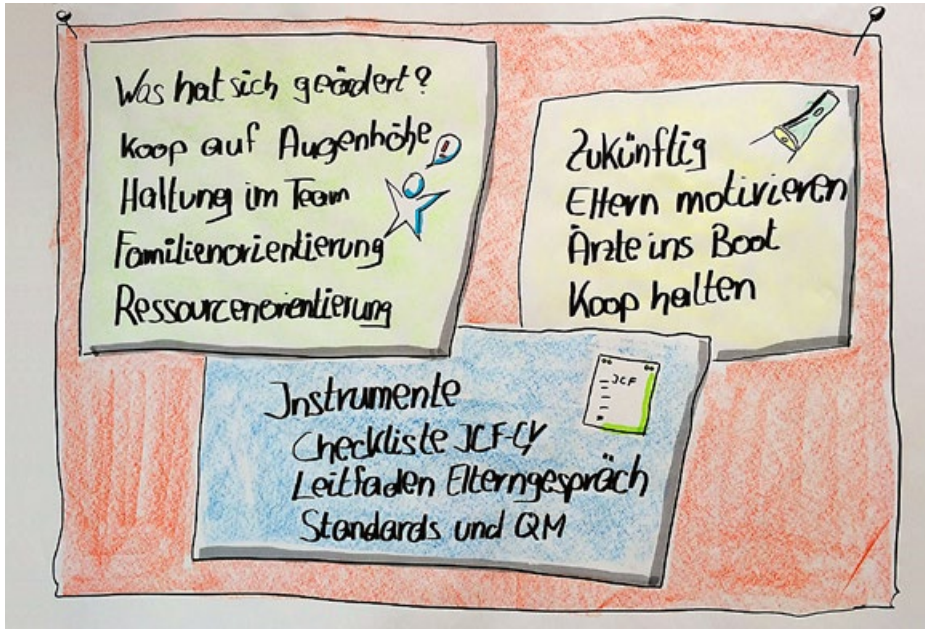 Was hat sich geändert?
Koop auf Augenhöhe
Haltung im Team
Familienorientierung
Ressourcenorientierung
Zukünftig
Eltern motivieren
Ärzte ins Boot
Koop halten
JCF
Jnstrumente
Checkliste JCF-CY
Leitfaden Elterngespräch
Standards und QM